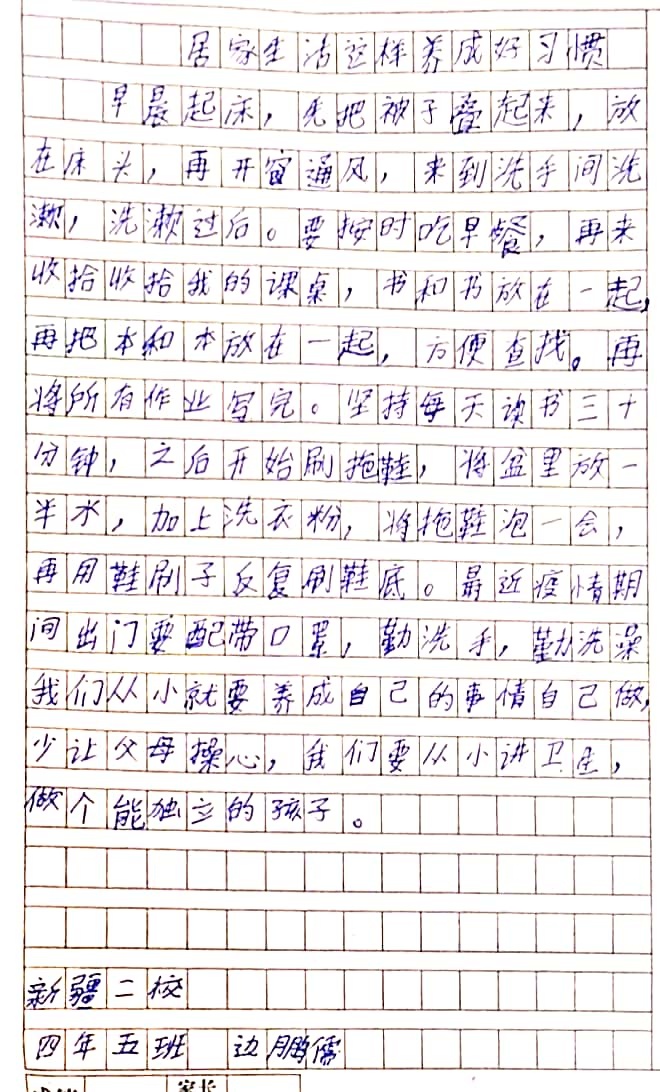 居家生活这样养成好习惯
早晨起床，先把被子叠起来，放
在床头，再开窗通风，来到洗手间洗
漱，洗漱过后。要按时吃早餐，再来
收拾收拾我的课桌，书和书放在一起，
再把本和本放在一起，方便查找。再
将所有作业写完。坚持每天读书三十
分钟，之后开始刷拖鞋，将盆里放一
半水，加上洗衣粉，将拖鞋泡一会，
再用鞋刷子反复刷鞋底。最近疫情期
间出门要配带口罩，勤洗手，勤洗澡
我们从小就要养成自己的事情自己做，
少让父母操心，我们要从小讲卫生，
做个能独立的孩子。
新疆二校
四年五班 边鹏儒
家长